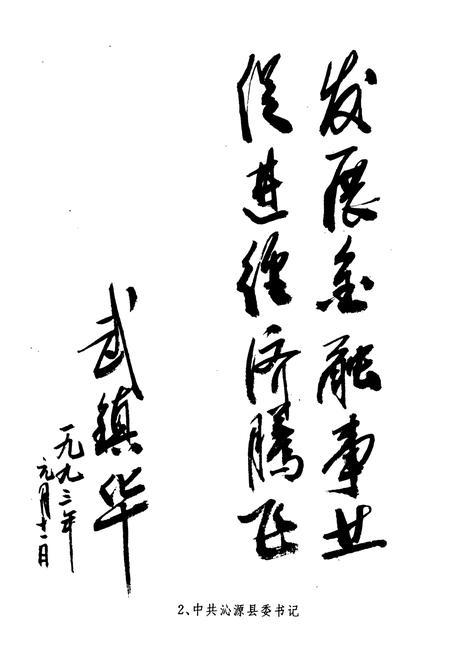 发展金融事业
促进经济腾飞
武镇华
一九九三年
元月十一日
2、中共沁源县委书记